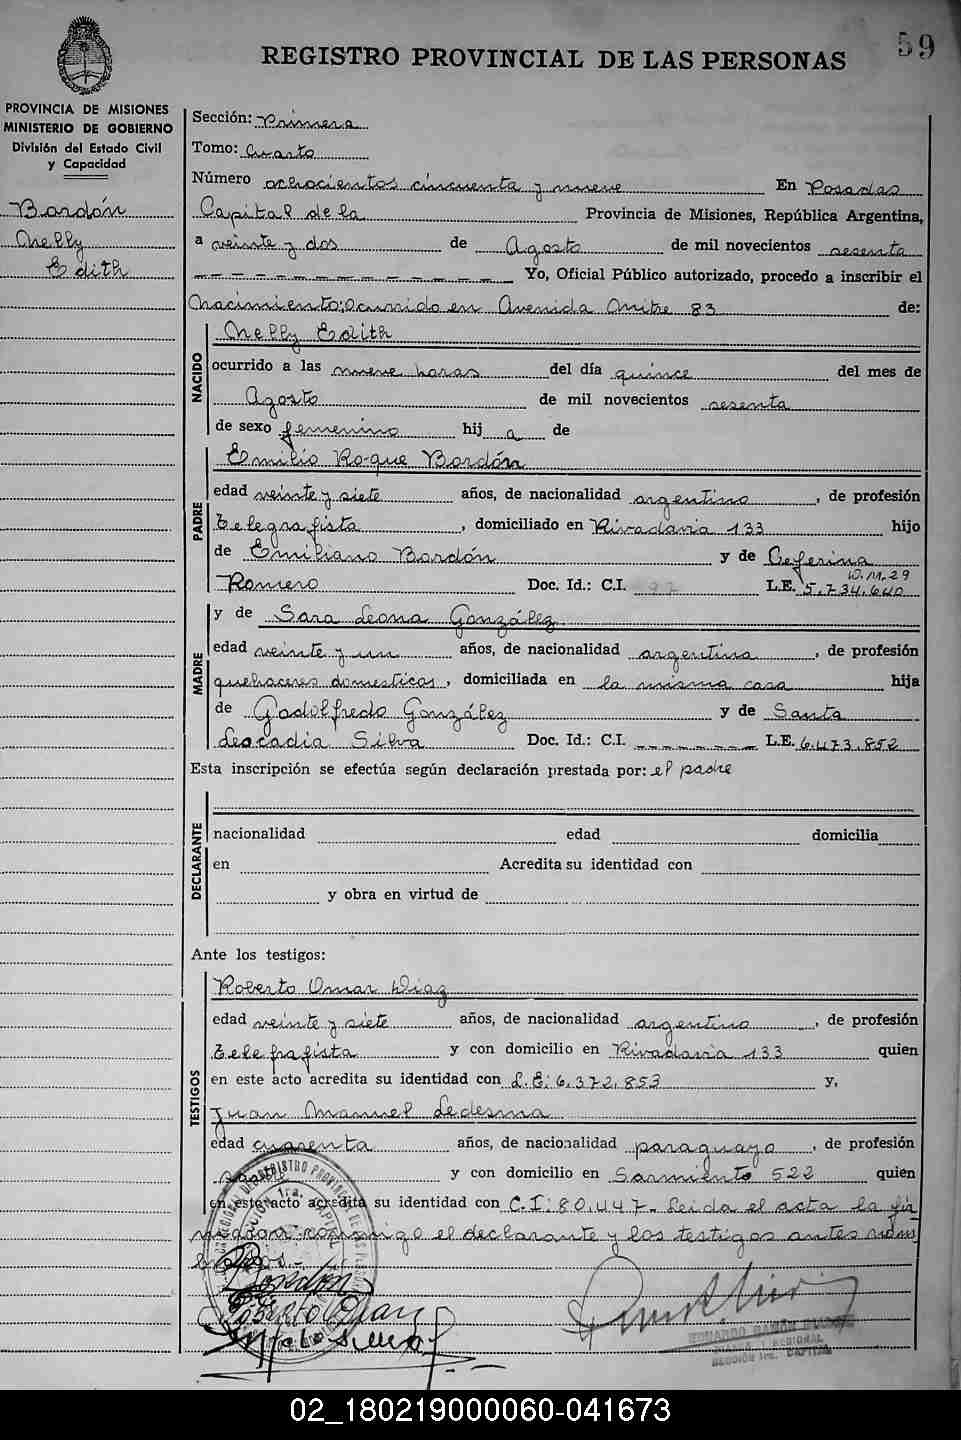 59
REGISTRO PROVINCIAL DE LAS PERSONAS
PROVINCIA DE MISIONES
MINISTERIO DE GOBIERNO
División del Estado Civil
y Capacidad
Bordón
Nelly
Edith
Sección: Primera
Tomo: Cuarto
Número ochocientos cincuenta y nueve En Posadas
Capital de la Provincia de Misiones, República Argentina,
a veinte y dos de Agosto de mil novecientos sesenta
Yo, Oficial Público autorizado, procedo a inscribir el
Nacimiento: Ocurrido en Avenida Mitre 83 de:
NACIDO
Nelly Edith
ocurrido a las nueve horas del día quince del mes de
Agosto de mil novecientos sesenta
de sexo femenino hij a de
PADRE
Emilio Roque Bordón
edad veinte y siete años, de nacionalidad argentino, de profesión
telegrafista, domiciliado en Rivadavia 133 hijo
de Emiliano Bordón y de Ceferina
Romero Doc. Id.: C.I. L.E. 5.734.640
MADRE
y de Sara Leona González
edad veinte y un años, de nacionalidad argentina, de profesión
quehaceres domesticos, domiciliada en la misma casa hija
de Godolfredo González y de Santa
Leocadia Silva Doc. Id.: C.I. L.E. 6.473.852
Esta inscripción se efectúa según declaración prestada por: el padre
DECLARANTE
nacionalidad edad domicilia
en Acredita su identidad con
y obra en virtud de
Ante los testigos:
TESTIGOS
Roberto Omar Diaz
edad veinte y siete años, de nacionalidad argentino, de profesión
telefrafista y con domicilio en Rivadavia 133 quien
en este acto acredita su identidad con L.E: 6.372.853 y,
Juan Manuel Ledesma
edad cuarenta años, de nacionalidad paraguayo, de profesión
y con domicilio en Sarmiento 522 quien
en este acto acredita su identidad con C.I: 80.447. Leida el acta la fir
man conmigo el declarante y los testigos antes nom
Bordón
EDUARDO RAMÓN
REGIONAL
SECCIÓN 1ra. CAPITAL
02_180219000060-041673